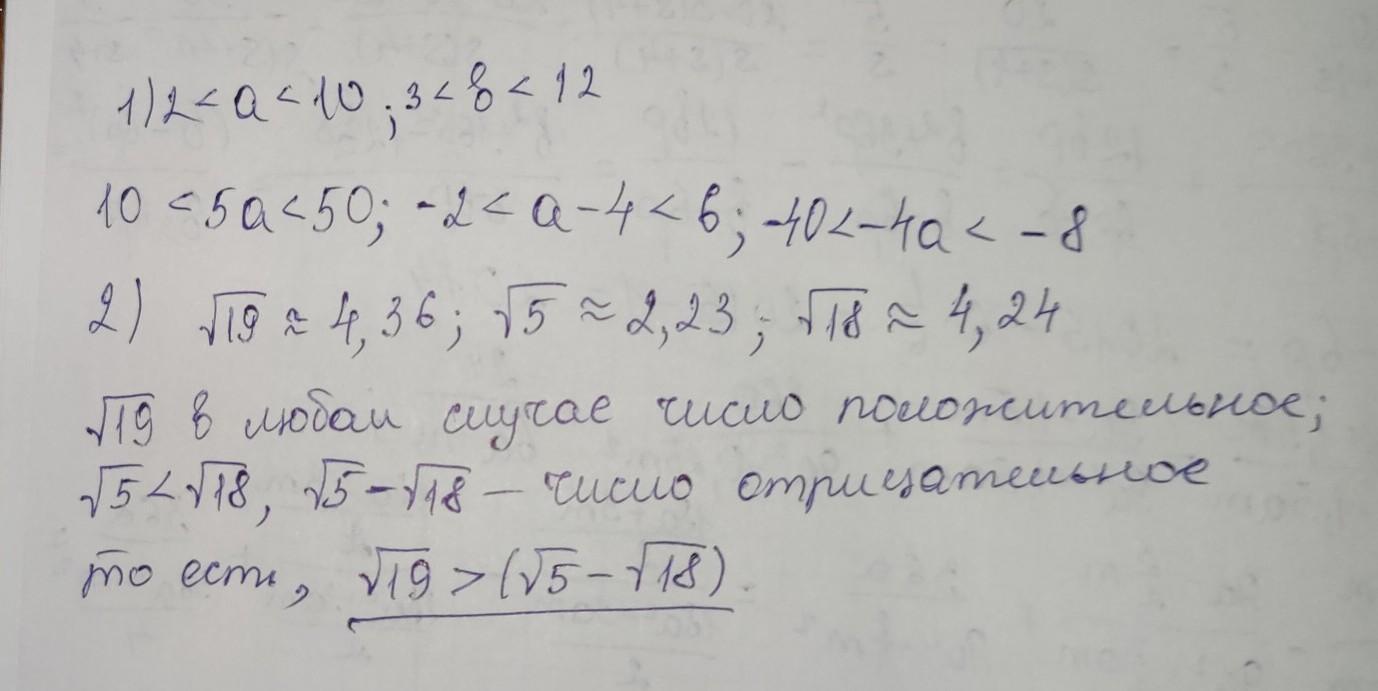 1) 2 < a < 10 ; 3 < в < 12
10 < 5a < 50; -2 < a - 4 < 6; -40 < -4a < -8
2) √19 ≈ 4,36; √5 ≈ 2,23; √18 ≈ 4,24
√19 в любом случае число положительное;
√5 < √18, √5 - √18 — число отрицательное
то есть, √19 > (√5 - √18)